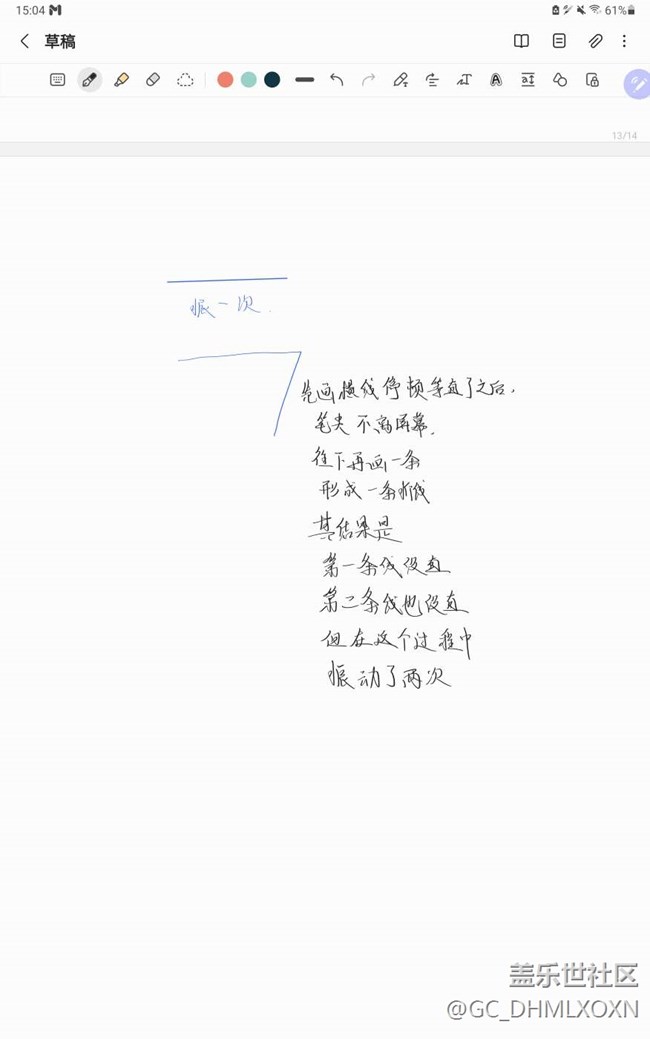 15:04 M 61%
草稿
13/14
振一次.
先画横线停顿等直了之后,
笔尖不离屏幕.
往下再画一条
形成一条折线
其结果是
第一条线没直
第二条线也没直
但在这个过程中
振动了两次
盖乐世社区
@GC_DHMLXOXN